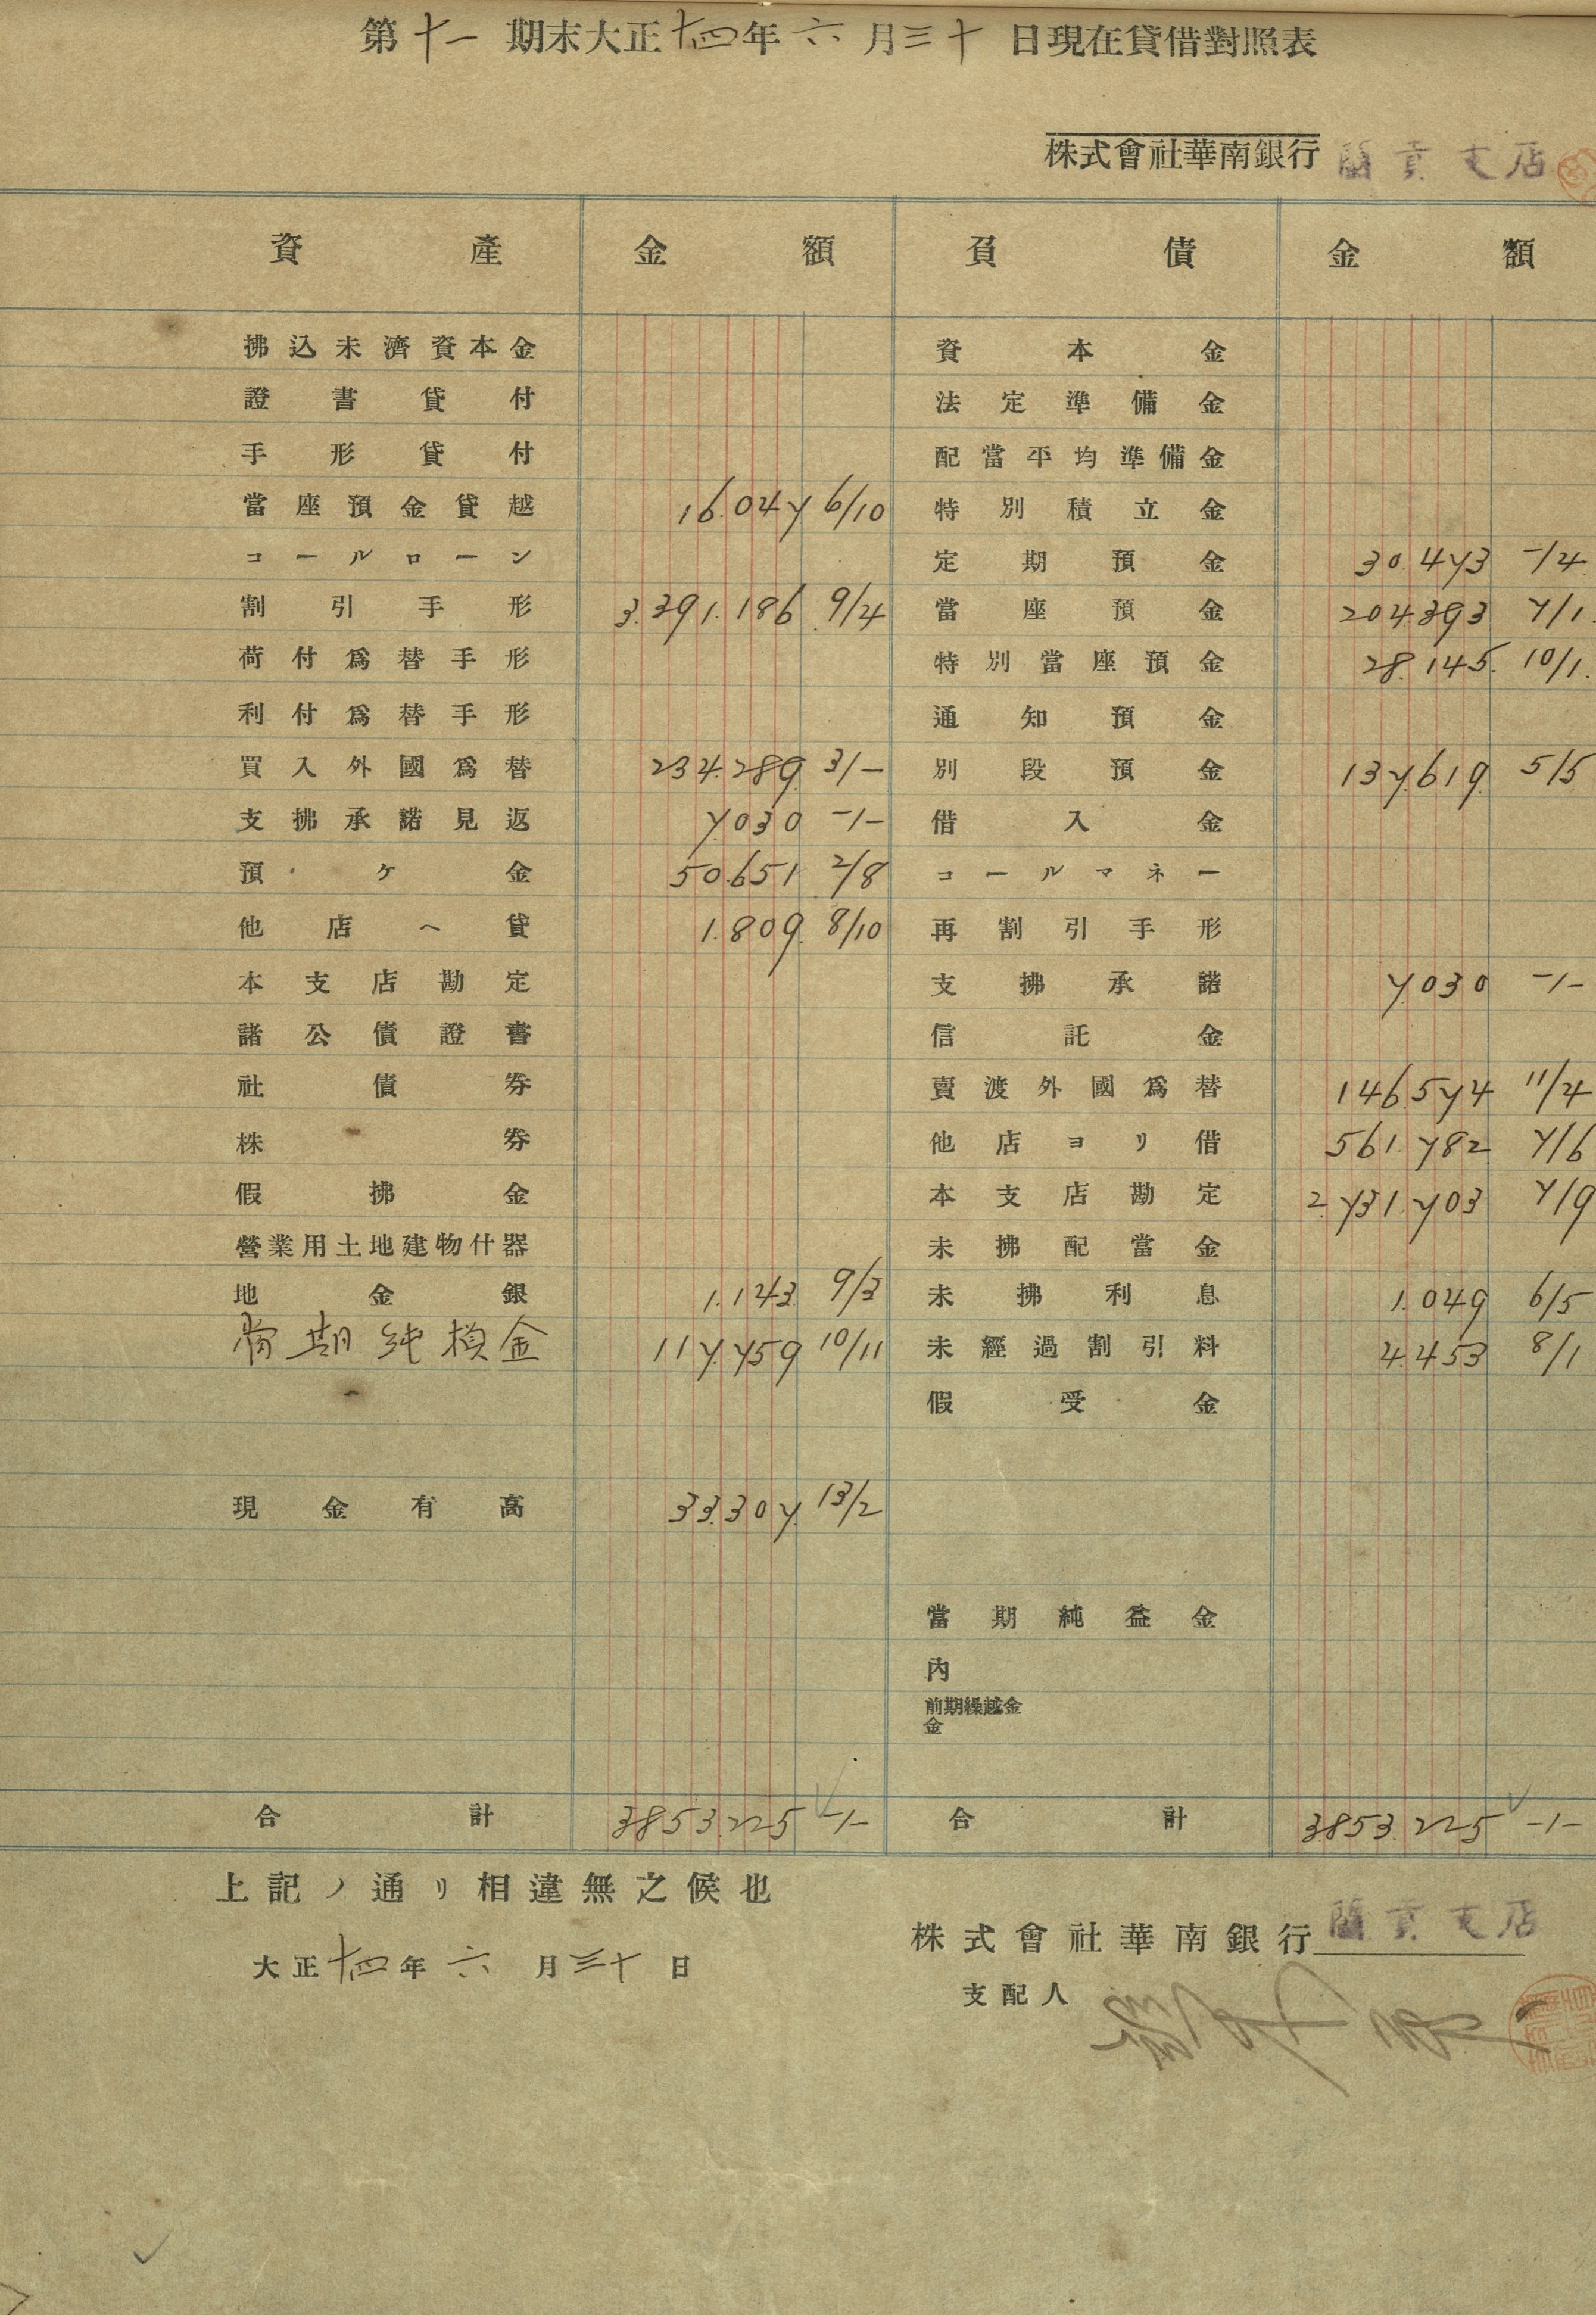 第十一期末大正十四年六月三十日現在貸借對照表
株式會社華南銀行 蘭貢支店
資產 金額 負債 金額
拂込未濟資本金 資本金
證書貸付 法定準備金
手形貸付 配當平均準備金
當座預金貸越 16.047 6/10 特別積立金
コールローン 定期預金 30.473 -/4
割引手形 3.391.186 9/4 當座預金 204.393 7/1
荷付爲替手形 特別當座預金 28.145 10/1
利付爲替手形 通知預金
買入外國爲替 234.289 3/- 別段預金 137.619 5/5
支拂承諾見返 7.030 -/- 借入金
預ケ金 50.651 2/8 コールマネー
他店ヘ貸 1.809 8/10 再割引手形
本支店勘定 支拂承諾 7.030 -/-
諸公債證書 信託金
社債券 賣渡外國爲替 146.574 11/4
株券 他店ヨリ借 561.782 7/6
假拂金 本支店勘定 2.731.703 7/9
營業用土地建物什器 未拂配當金
地金銀 1.143 9/3 未拂利息 1.049 6/5
當期純損金 117.759 10/11 未經過割引料 4.453 8/1
假受金
現金有高 33.307 13/2
當期純益金
內
前期繰越金
金
合計 3853.225 -/- 合計 3853.225 -/-
上記ノ通リ相違無之候也
株式會社華南銀行 蘭貢支店
大正十四年六月三十日
支配人